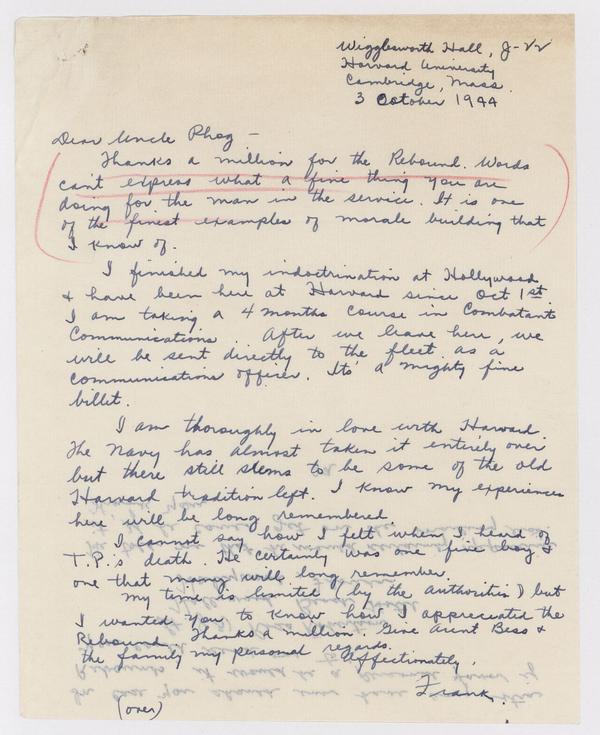 Wigglesworth Hall, J-22
Harvard University
Cambridge, Mass.
3 October 1944
Dear Uncle Phog -
Thanks a million for the Rebound. Words
can't express what a fine thing you are
doing for the man in the service. It is one
of the finest examples of morale building that
I know of.
I finished my indoctrination at Hollywood
& have been here at Harvard since Oct 1st.
I am taking a 4 months course in Combatant
Communications. After we leave here, we
will be sent directly to the fleet as a
communications officer. Its a mighty fine
billet.
I am thoroughly in love with Harvard.
The Navy has almost taken it entirely over
but there still seems to be some of the old
Harvard tradition left. I know my experiences
here will be long remembered.
I cannot say how I felt when I heard of
T.P.'s death. He certainly was one fine boy &
one that many will long remember.
My time is limited (by the authorities) but
I wanted you to know how I appreciated the
Rebound. Thanks a million. Give Aunt Bess &
the family my personal regards.
Affectionately,
Frank.
(over)